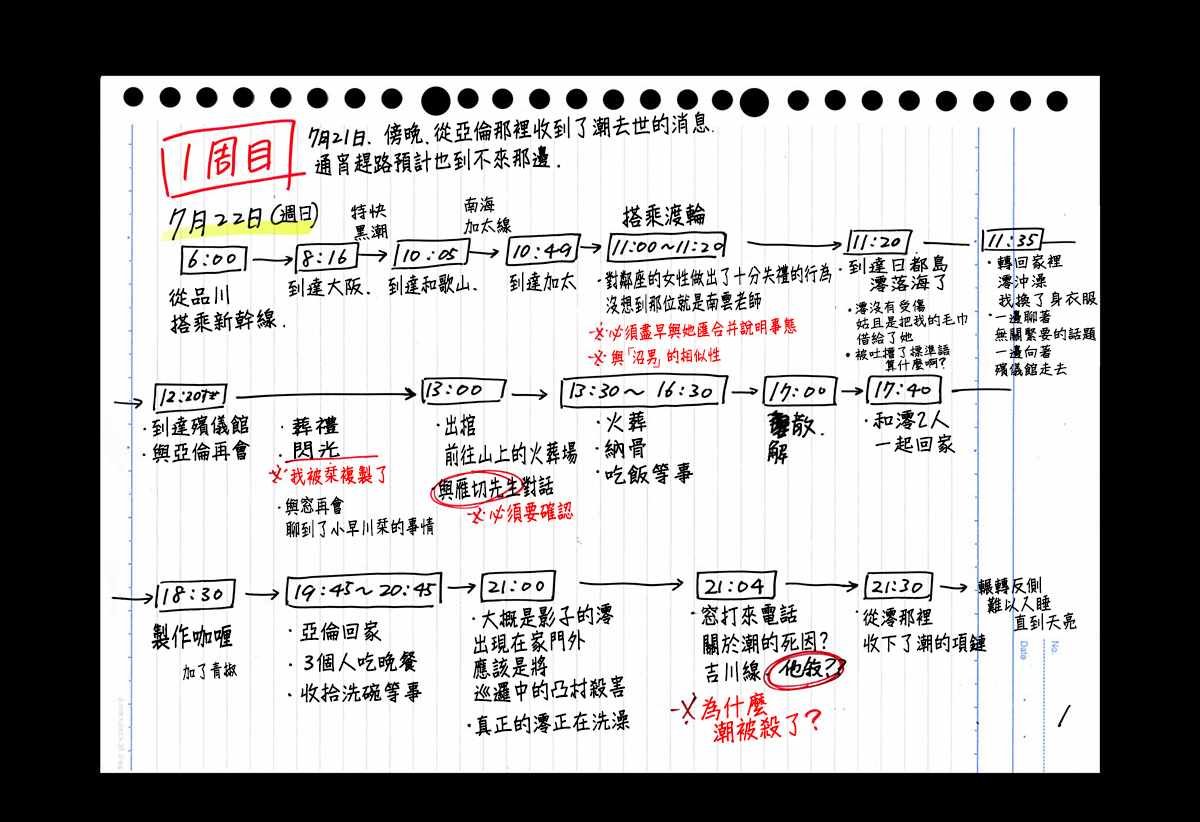 1周目
7月21日、傍晚、從亞倫那裡收到了潮去世的消息.
通宵趕路預計也到不來那邊.
7月22日(週日)
6:00
從品川
搭乘新幹線.
8:16
到達大阪、
特快
黑潮
10:05
到達和歌山、
南海
加太線
10:49
到達加太
搭乘渡輪
11:00~11:20
・對鄰座的女性做出了十分失禮的行為
沒想到那位就是南雲老師
※必須盡早與她匯合并說明事態
※與「沼男」的相似性
11:20
・到達日都島
澪落海了
・澪沒有受傷
姑且是把我的毛巾
借給了她
・被吐槽了標準語
算什麼啊?
11:35
・轉回家裡
澪沖澡
我換了身衣服
・一邊聊著
無關緊要的話題
一邊向著
殯儀館走去
12:20
・到達殯儀館
・與亞倫再會
・葬禮
・閃光
※我被栞複製了
・與窓再會
聊到了小早川栞的事情
13:00
・出棺
前往山上的火葬場
與雁切先生對話
※必須要確認
13:30~16:30
・火葬
・納骨
・吃飯等事
17:00
散.
解
17:40
・和澪2人
一起回家
18:30
製作咖喱
加了青椒
19:45~20:45
・亞倫回家
・3個人吃晚餐
・收拾洗碗等事
21:00
・大概是影子的澪
出現在家門外
應該是將
巡邏中的凸村殺害
・真正的澪正在洗澡
21:04
・窓打來電話
關於潮的死因?
吉川線、他殺??
※為什麼
潮被殺了?
21:30
・從澪那裡
收下了潮的項鏈
輾轉反側
難以入睡
直到天亮
No.
Date
1